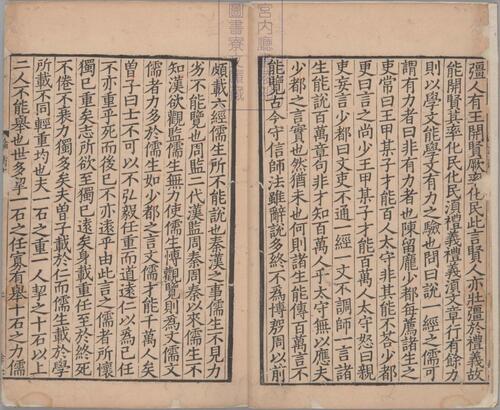 宮内廳
圖書寮文庫藏
彊人有王開賢厥率化民此言賢人亦壯彊於禮義故
能開賢其率化民化民須禮義禮義須文章行有餘力
則以學文能學文有力之驗也問曰說一經之儒可
謂有力者曰非有力者也陳留龐少都每薦諸生之
吏常曰王甲某子才能百人太守非其能不荅少都
更曰言之尚少王甲某子才能百萬人太守怒曰親
吏妄言少都曰文吏不通一經一文不調師一言諸
生能說百萬章句非才知百萬人乎太守無以應夫
少都之言實也然猶未也何則諸生能傳百萬言不
能覽古今守信師法雖辭說多終不為博殷周以前
頗載六經儒生所不能說也秦漢之事儒生不見力
劣不能覽也周監二代漢監周秦周秦以來儒生不
知漢欲觀監儒生無力使儒生博觀覽則為文儒文
儒者力多於儒生如少都之言文儒才能千萬人矣
曾子曰士不可以不弘毅任重而道遠仁以為己任
不亦重乎死而後已不亦遠乎由此言之儒者所懷
獨已重矣志所欲至獨已遠矣身載重任至於終死
不倦不衰力獨多矣夫曾子載於仁而儒生載於學
所載不同輕重均也夫一石之重一人挈之十石以上
二人不能舉也世多挈一石之任寡有舉十石之力儒